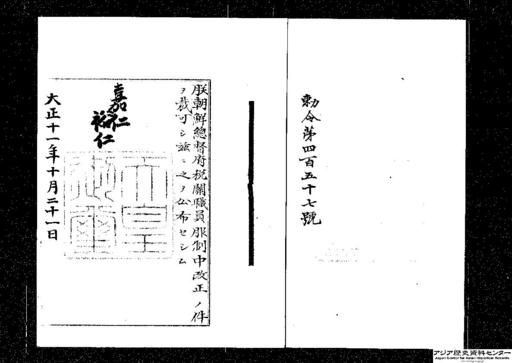 勅令第四百五十七號
朕朝鮮總督府税關職員服制中改正ノ件
ヲ裁可シ茲ニ之ヲ公布セシム
嘉仁
裕仁
天皇御璽
大正十一年十月二十一日
アジア歴史資料センター
Japan Center for Asian Historical Records